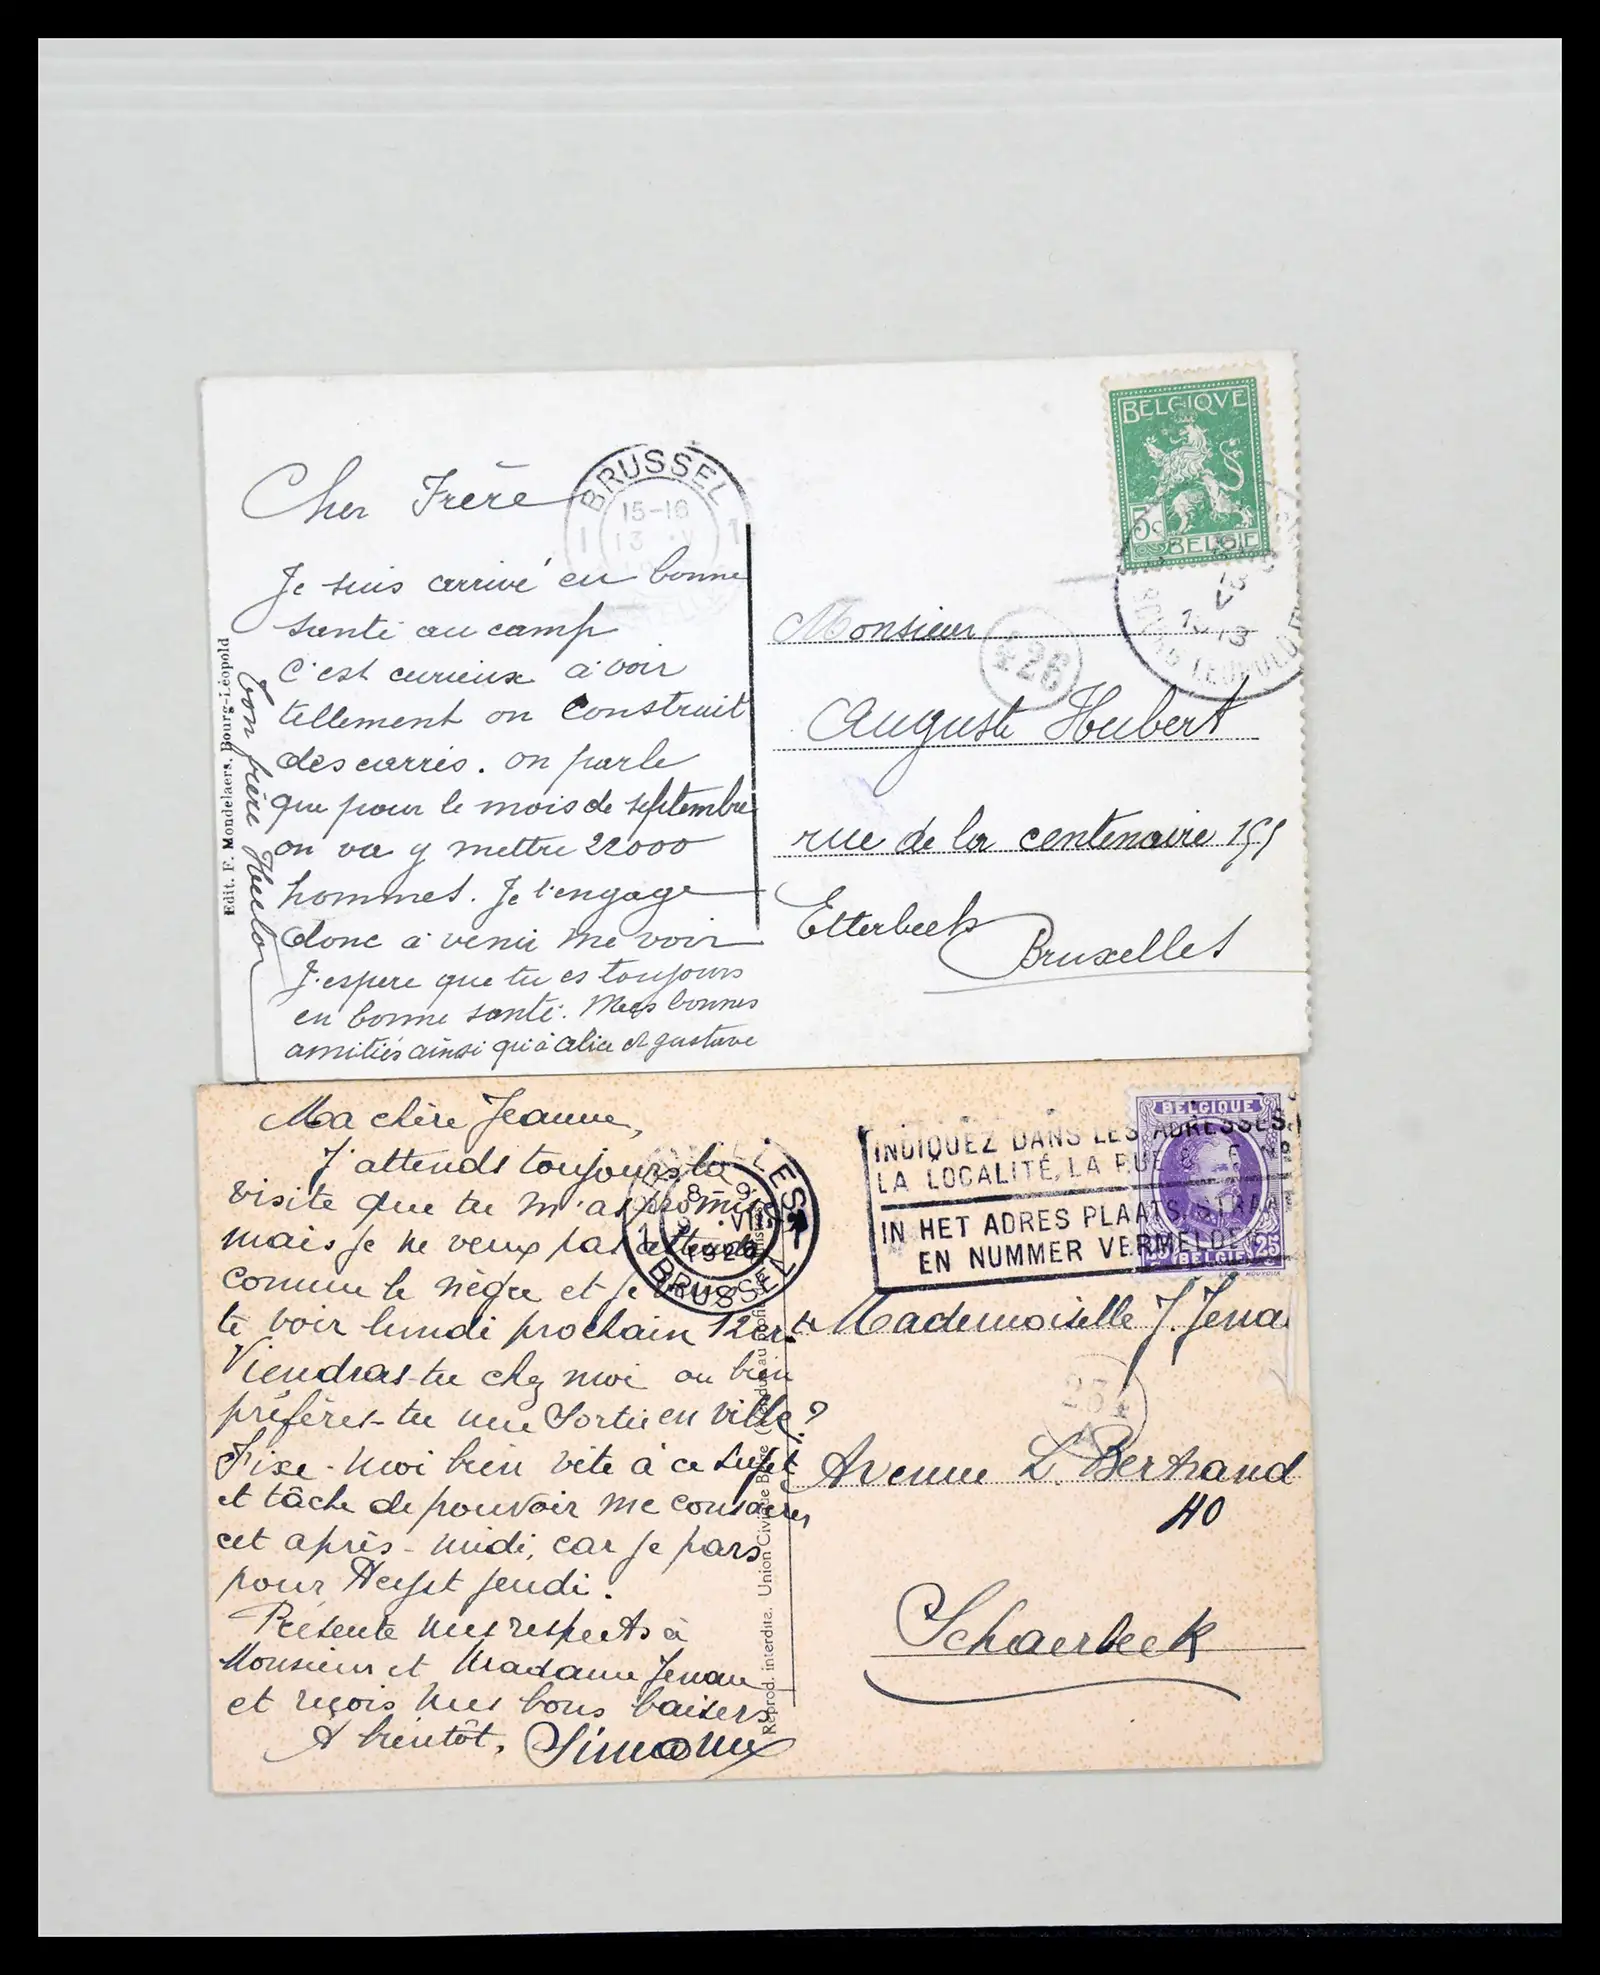 BELGIQVE
5c
BELGIE
BRUSSEL
15-16
1 13 V 1
Cher Frère
Je suis arrivé en bonne
santé au camp
C'est curieux à voir
tellement on construit
des carrés. on parle
que pour le mois de septembre
on va y mettre 22000
hommes. Je t'engage
donc à venir me voir
J'espere que tu es toujours
en bonne santé. Mes bonnes
amitiés ainsi qu'à alice et gustave
ton frère
Edit. F. Mondelaers, Bourg-Léopold
13 V
1913
LEOPOLD
426
Monsieur
Auguste Hubert
rue de la centenaire 155
Etterbeek
Bruxelles
Ma chère Jeanne,
J'attends toujours la
visite que tu m'as promise
mais je ne veux pas attendre
comme le nègre et je
te voir lundi prochain 12 ct.
Viendras-tu chez moi ou bien
préfères-tu une sortie en ville?
Fixe-moi bien vite à ce sujet
et tâche de pouvoir me consacrer
cet après-midi, car je pars
pour Heyst jeudi.
Présente mes respects à
Monsieur et Madame Jenau
et reçois mes bons baisers
A bientôt, Simone
8-9
9 VII
192
BRUSSEL
Reprod. interdite. Union Civique Belge
INDIQUEZ DANS LES ADRESSES
LA LOCALITÉ, LA RUE & Nº
IN HET ADRES PLAATS, STRAAT
EN NUMMER VERMELDEN
BELGIQUE
25
BELGIE 25
Mademoiselle J. Jena
Avenue L. Bertrand
40
Schaerbeek